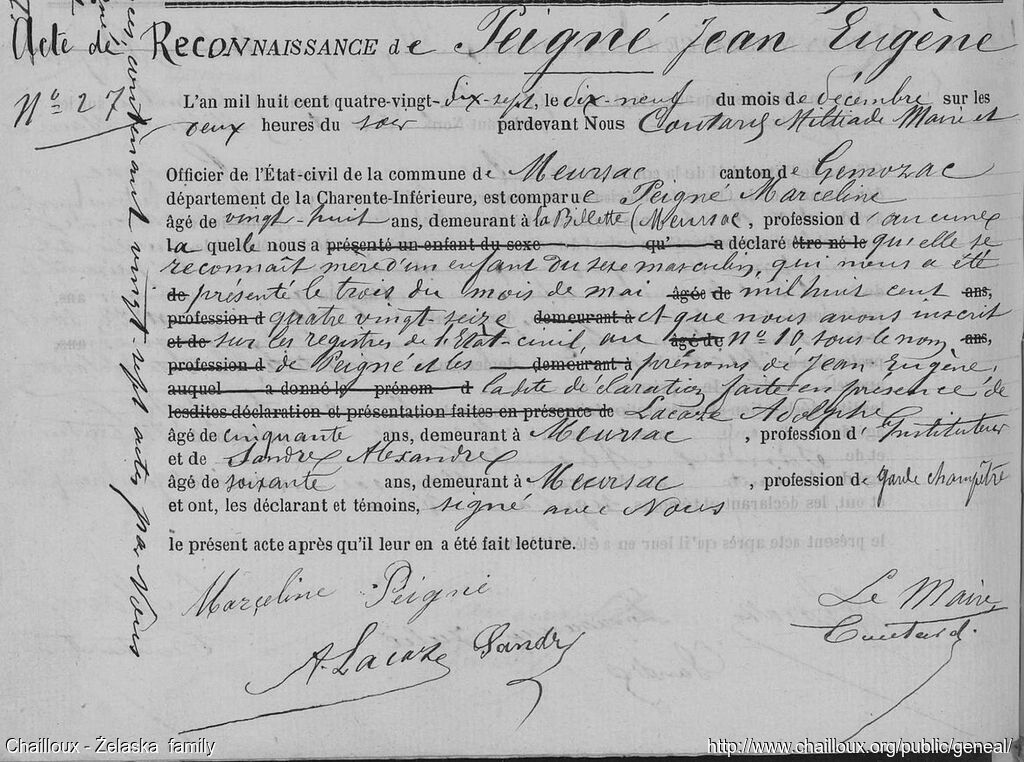 Acte de RECONNAISSANCE de Peigné Jean Eugène
N° 27
L'an mil huit cent quatre-vingt-dix-sept, le dix-neuf du mois de décembre sur les
deux heures du soir pardevant Nous Coutard Miltiade Maire et
Officier de l'État-civil de la commune de Meursac canton de Gemozac
département de la Charente-Inférieure, est comparue Peigné Marceline
âgé de vingt-huit ans, demeurant à la Billette (Meursac, profession d'aucune
la quelle nous a présenté un enfant du sexe qu' a déclaré être né le qu'elle se
reconnaît mère d'un enfant du sexe masculin, qui nous a été
de présenté le trois du mois de mai âgée de mil huit cent ans,
profession d quatre vingt-seize demeurant à et que nous avons inscrit
et de sur les registres de l'Etat-civil, au âgé de N° 10 sous le nom ans,
profession d de Peigné et les demeurant à prénoms de Jean Eugène,
auquel a donné le prénom d ladite déclaration faite en présence de
lesdites déclaration et présentation faites en présence de Lacaze Adolphe
âgé de cinquante ans, demeurant à Meursac, profession d'Instituteur
et de Sandre Alexandre
âgé de soixante ans, demeurant à Meursac, profession de garde champêtre
et ont, les déclarant et témoins, signé avec Nous
le présent acte après qu'il leur en a été fait lecture.
Marceline Peigné
Le Maire
Coutard
A. Lacaze Sandre
contenant vingt-sept actes par Nous
Chailloux - Żelaska family
http://www.chailloux.org/public/geneal/